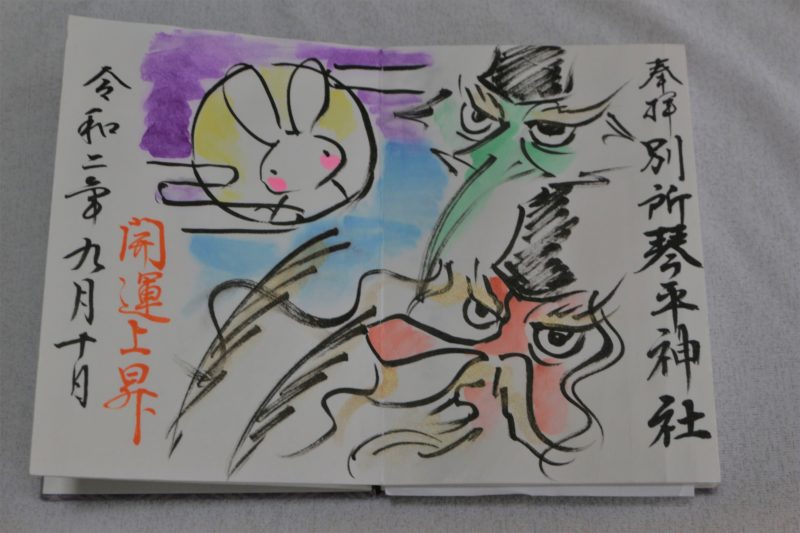 奉拝
別所琴平神社
開運上昇
令和二年九月十月